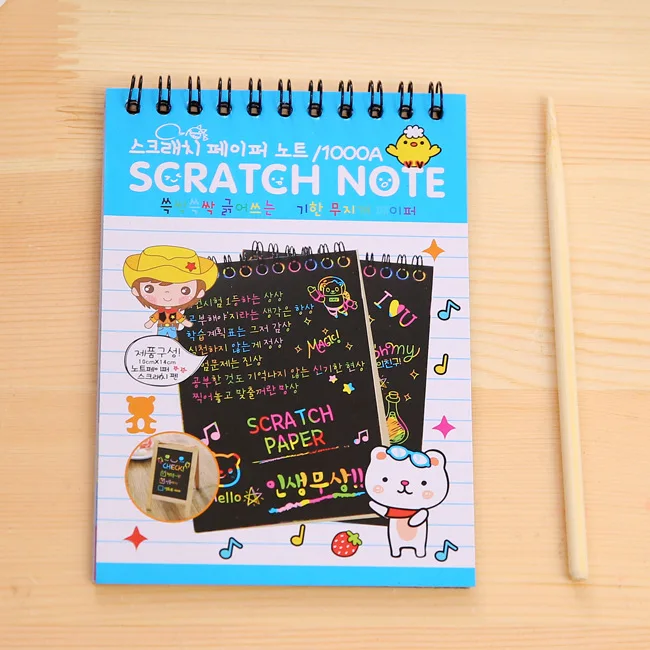 스크래치 페이퍼 노트 /1000A
SCRATCH NOTE
쓱싹쓱싹 긁어쓰는 기한 무지 이퍼
I U
시험 1등하는 상상
고부해야지라는 생각은 항상
학습계획표는 그저 감상
실천하지 않는게 정상
험문제는 진상
공부한 것도 기억나지 않는 신기한 현상
찍어놓고 맞출꺼란 망상
Magic!
Oh my
친구
제품구성!
노트페이퍼
스크래치 펜
SCRATCH
PAPER
CHECK!
Hello
인생무상!!